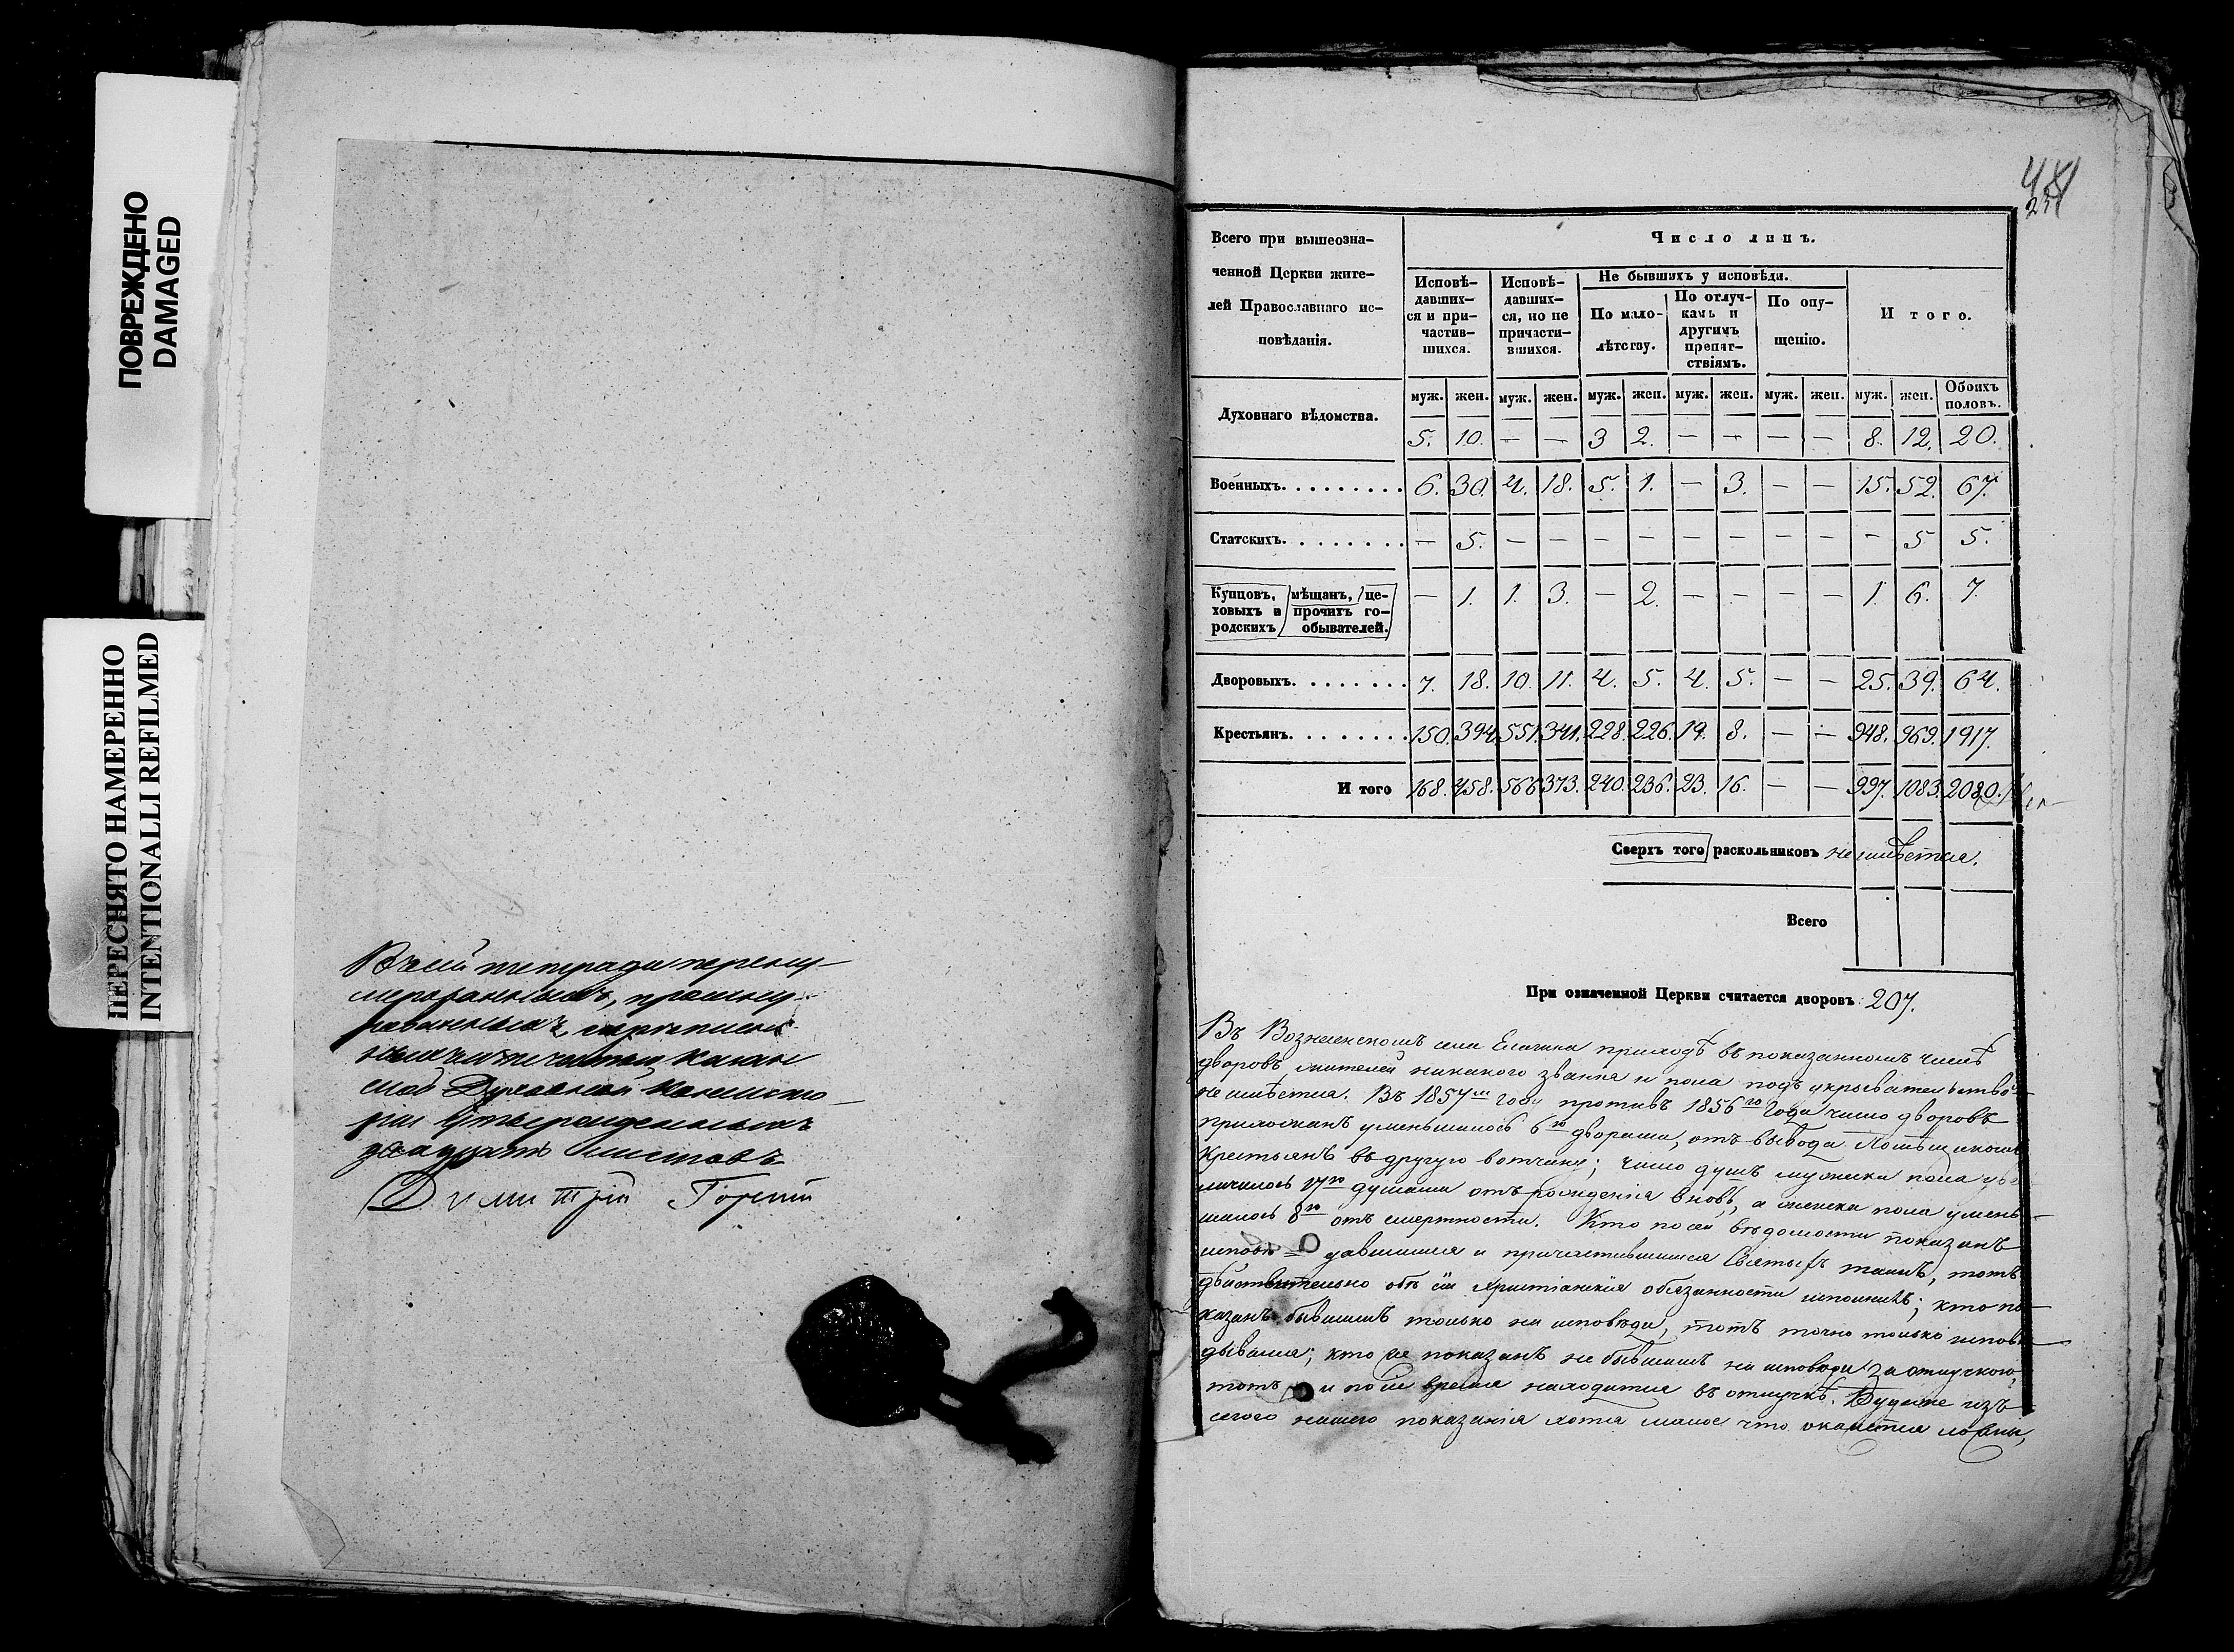 ПОВРЕЖДЕНО
DAMAGED
ПЕРЕСНЯТО НАМЕРЕННО
INTENTIONALLI REFILMED
Въ сей тетради перену-
мерованныхъ, прошну-
рованныхъ, скрепленныхъ
и печатью Казан
ской Духовной Консисто-
ріи утвержденныхъ
двадцать листовъ
Димитрій
Всего при вышеозна-
ченной Церкви жите-
лей Православнаго ис-
повѣданія.
Число лицъ.
Исповѣ-
давших-
ся и при-
частив-
шихся.
Исповѣ-
давших-
ся, но не
причасти-
вшихся.
Не бывшихъ у исповѣди.
По мало-
лѣтству.
По отлуч-
камъ и
другимъ
препят-
ствіямъ.
По опу-
щенію.
Итого.
муж. жен. муж. жен. муж. жен. муж. жен. муж. жен. муж. жен. Обоихъ половъ.
Духовнаго вѣдомства. 5. 10. — — 3 2. — — — — 8. 12. 20.
Военныхъ. . . . . . . . . 6. 30. 4. 18. 5. 1. — 3. — — 15. 52. 67.
Статскихъ. . . . . . . . — 5. — — — — — — — — — 5 5.
Купцовъ, мѣщанъ, це-
ховыхъ и прочихъ го-
родскихъ обывателей. — 1. 1. 3. — 2. — — — 1. 6. 7.
Дворовыхъ. . . . . . . . 7. 18. 10. 11. 4. 5. 4. 5. — — 25. 39. 64.
Крестьянъ. . . . . . . . 150. 394. 551. 341. 228. 226. 19. 8. — — 948. 969. 1917.
И того 168. 458. 566 373. 240. 236. 23. 16. — — 997. 1083. 2080.
Сверхъ того раскольниковъ не имѣется.
Всего
При означенной Церкви считается дворовъ 207.
Въ Вознесенскомъ села приходѣ въ показанномъ числѣ
дворовъ жителей никакого званія и пола подъ укрывательство
не имѣется. Въ 1857мъ году противъ 1856го года число дворовъ
прихожанъ уменьшилось 6ю дворами, отъ вывода
крестьянъ въ другую вотчину; число душъ мужска пола уве
личилось 17ю душами отъ рожденія вновь, а женска пола умень-
шилось 8ю отъ смертности. Кто по сей вѣдомости показанъ
исповѣдавшимся и причастившимся Святыхъ таинъ, тотъ
дѣйствительно обѣ сіи Христіанскія обязанности исполнилъ; кто по-
казанъ бывшимъ только на исповѣди, тотъ точно только исповѣ
дывался; кто же показанъ не бывшимъ на исповѣди за отлучкою,
тотъ и по сіе время находится въ отлучкѣ. Буде же изъ
сего нашего показанія хотя малое что окажется ложны,